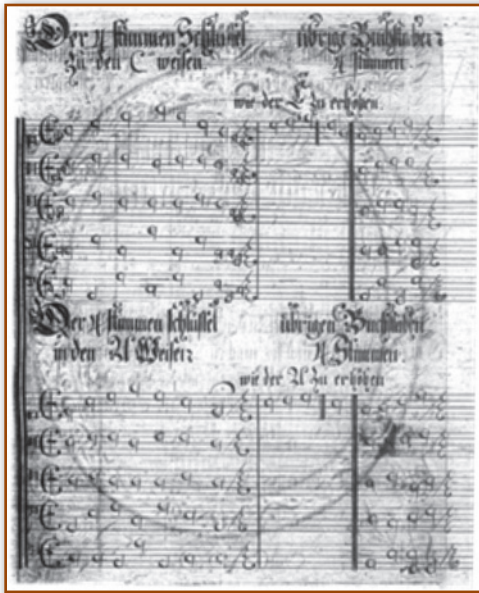 Der 4 stimmen Schlüssel
zu den C weisen
übrige Buchstaben
4 stimmen
wie der C Zu erhöhen.
Der 4 stimmen schlüssel
in den A Weisen
übrigen Buchstaben
4 Stimmen
wie der A Zu erhöhen